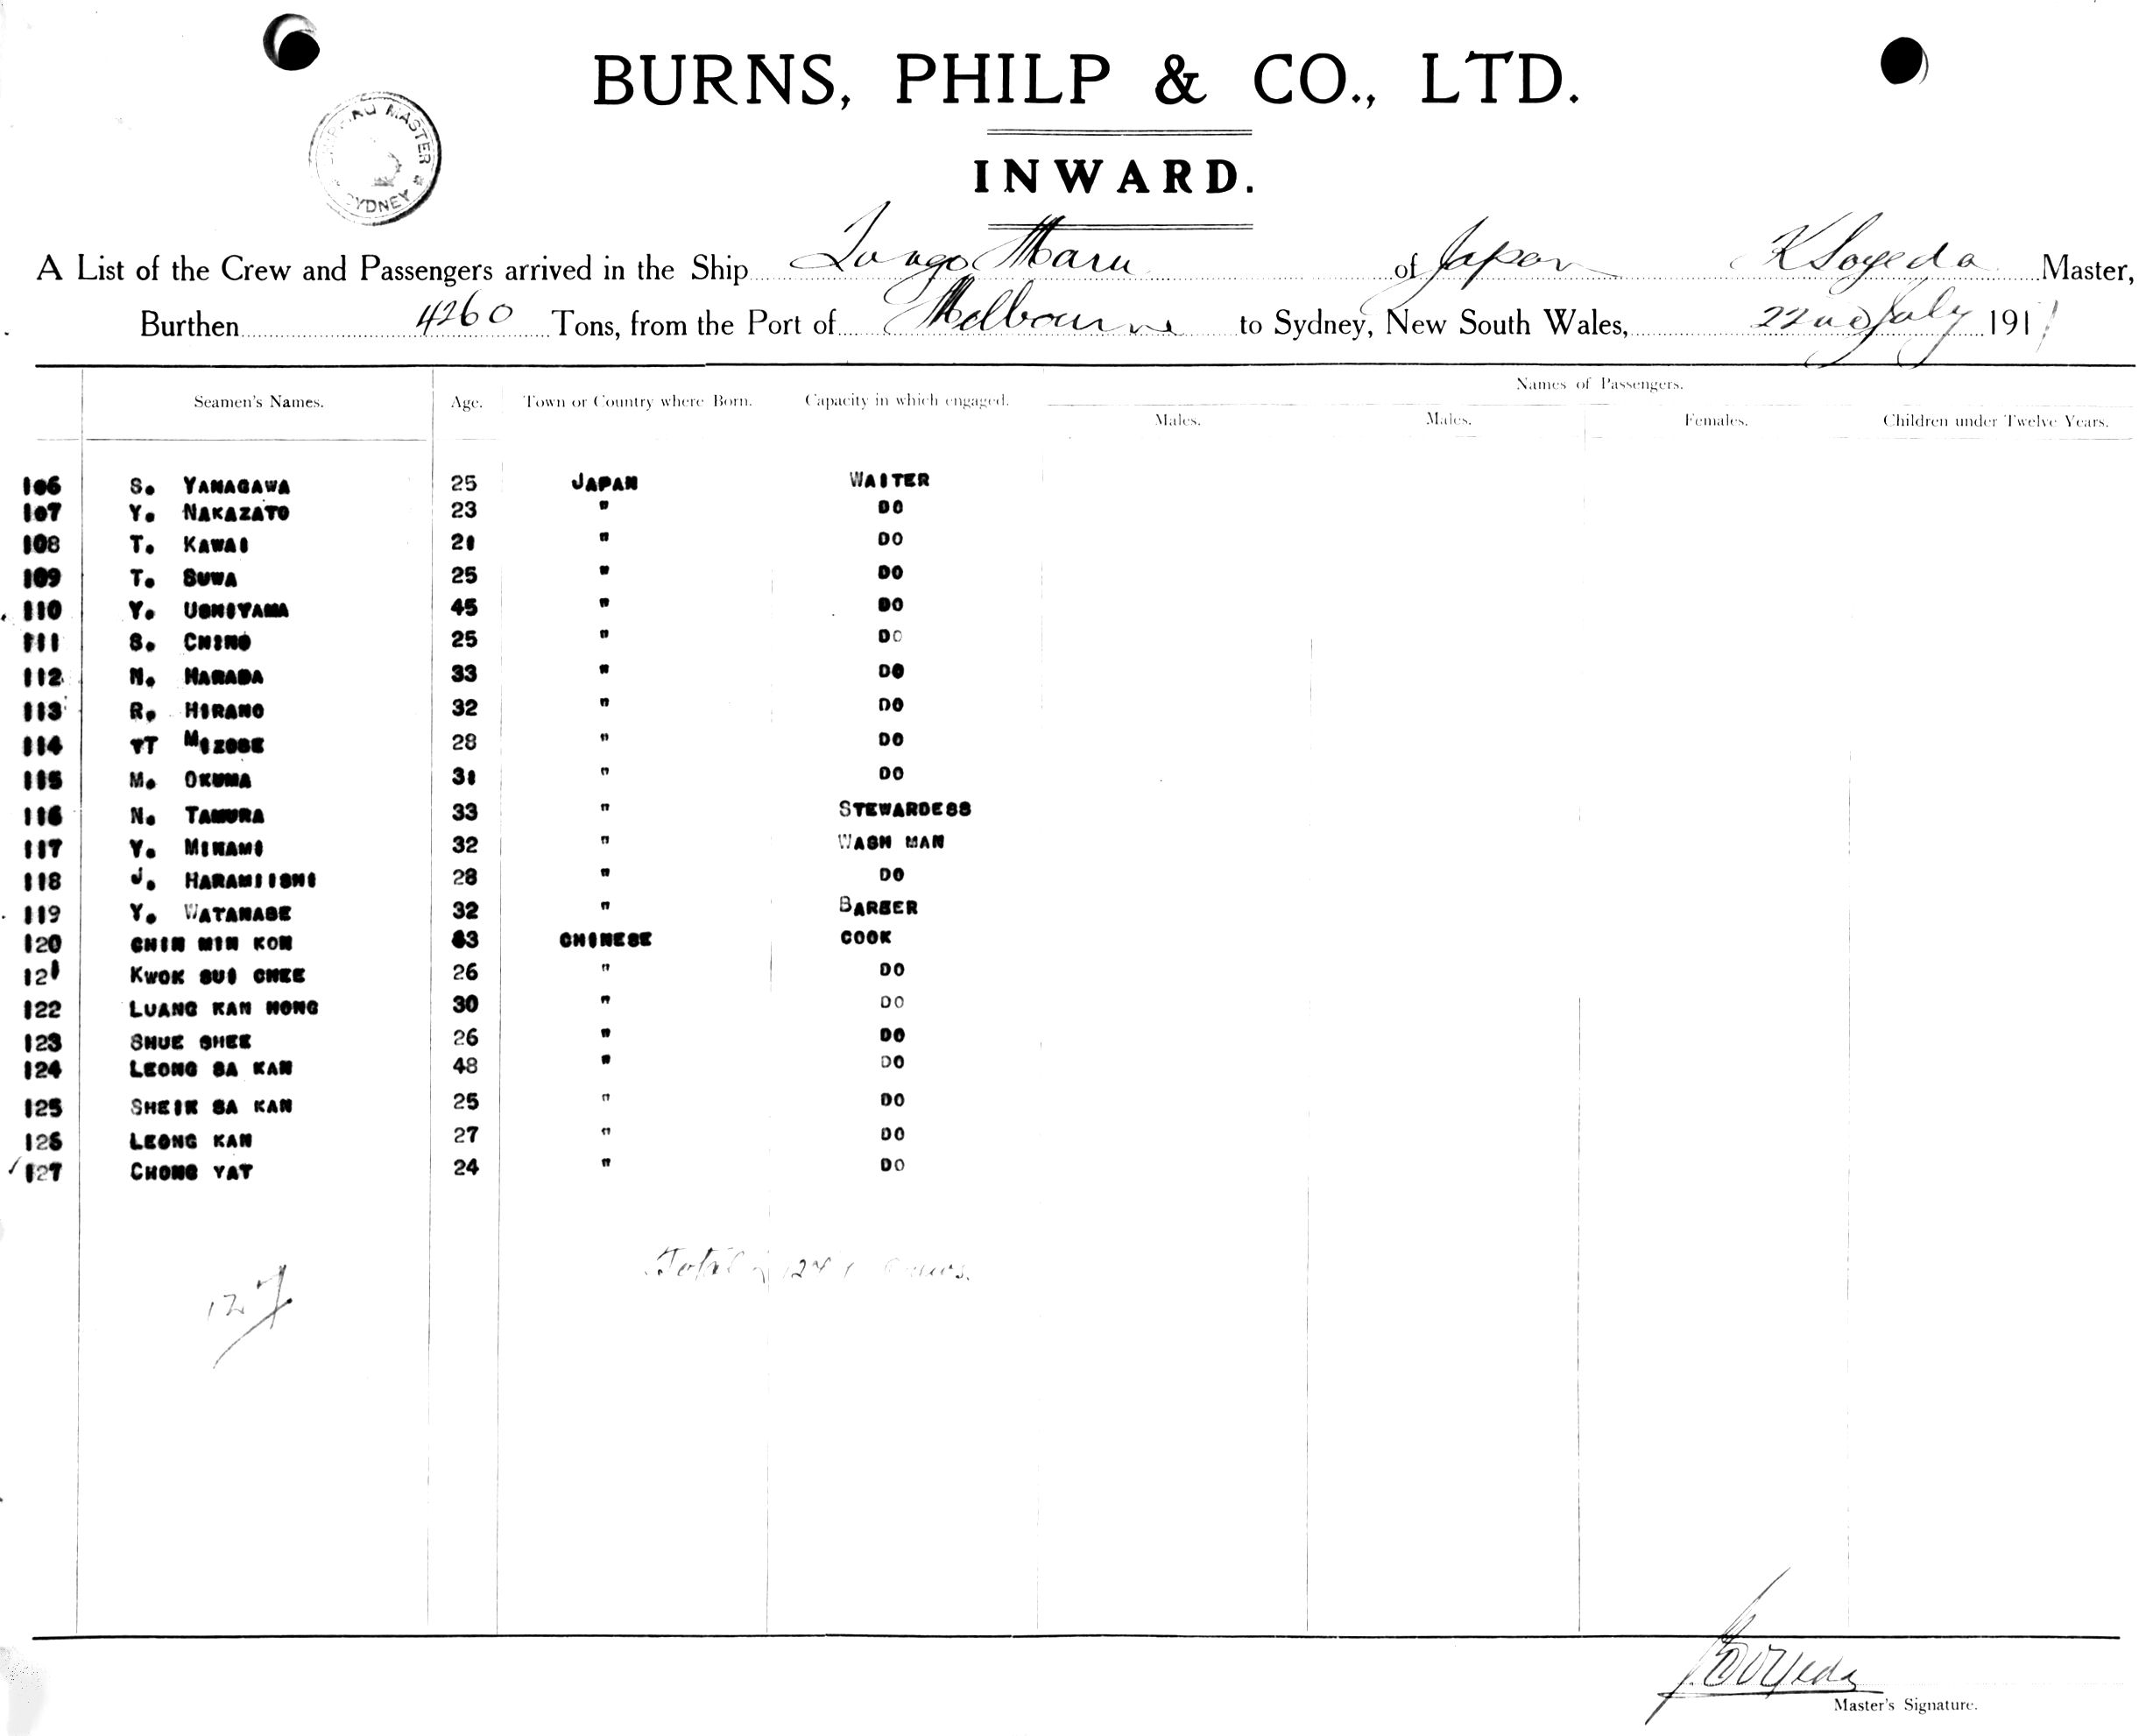 BURNS, PHILP & CO., LTD.
SHIPPING MASTER SYDNEY
INWARD.
A List of the Crew and Passengers arrived in the Ship Tango Maru of Japan K Soyeda Master,
Burthen 4260 Tons, from the Port of Melbourne to Sydney, New South Wales, 22nd July 1911
Names of Passengers.
Seamen's Names. Age. Town or Country where Born. Capacity in which engaged. Males. Males. Females. Children under Twelve Years.
106 S. YANAGAWA 25 JAPAN WAITER
107 Y. NAKAZATO 23 " DO
108 T. KAWAI 21 " DO
109 T. SUWA 25 " DO
110 Y. UCHIYAMA 45 " DO
111 S. CHINO 25 " DO
112 N. HARADA 33 " DO
113 R. HIRANO 32 " DO
114 MIZOBE 28 " DO
115 M. OKUMA 31 " DO
116 N. TAMURA 33 " STEWARDESS
117 Y. MINAMI 32 " WASH MAN
118 J. HARAMIISHI 28 " DO
119 Y. WATANABE 32 " BARBER
120 CHIN MIN KON CHINESE COOK
121 KWOK SUI CHEE 26 " DO
122 LUANG KAN HONG 30 " DO
123 SHUE SHEE 26 " DO
124 LEONG SA KAN 48 " DO
125 SHEIK SA KAN 25 " DO
126 LEONG KAN 27 " DO
127 CHONG YAT 24 " DO
Total 127
127
K Soyeda
Master's Signature.